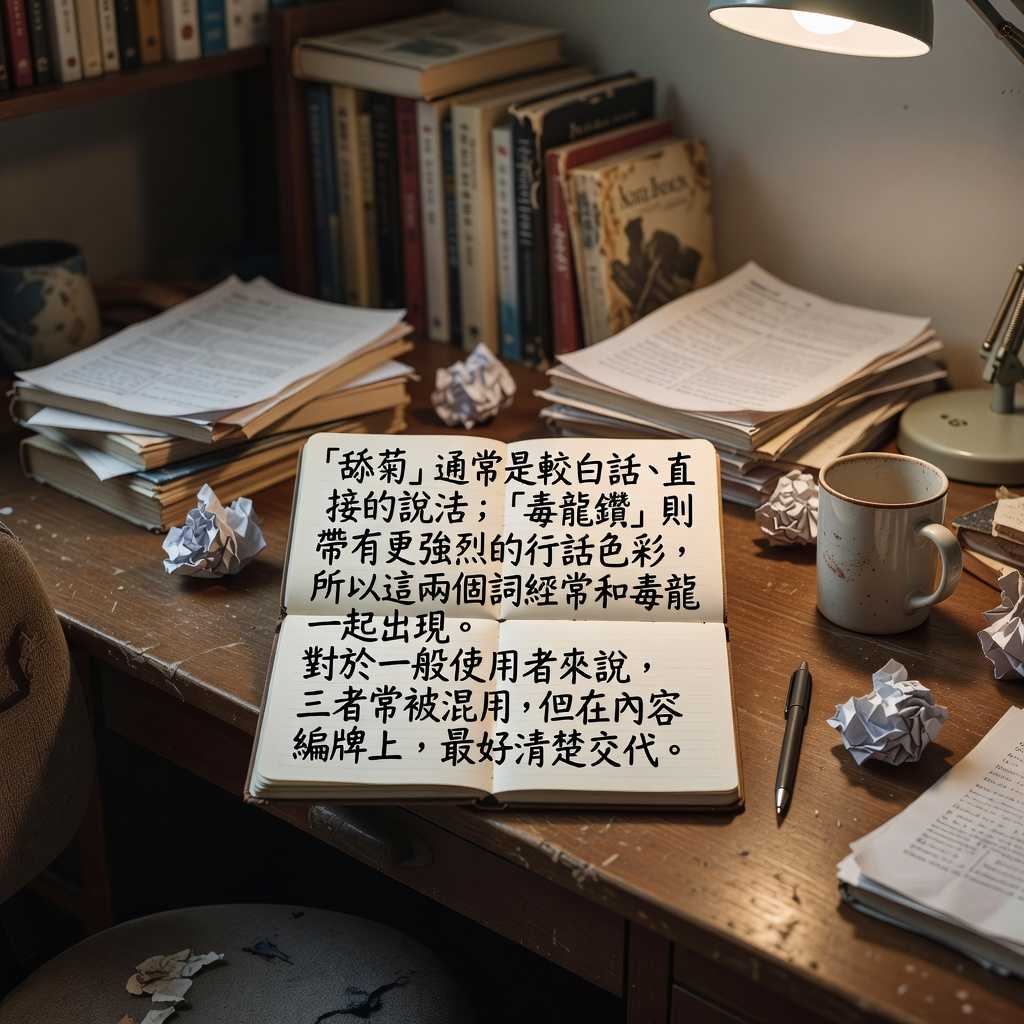 「舔菊」通常是較白話、直
接的說法；「毒龍鑽」則
帶有更強烈的行話色彩，
所以這兩個詞經常和毒龍
一起出現。
對於一般使用者來說，
三者常被混用，但在內容
編牌上，最好清楚交代。